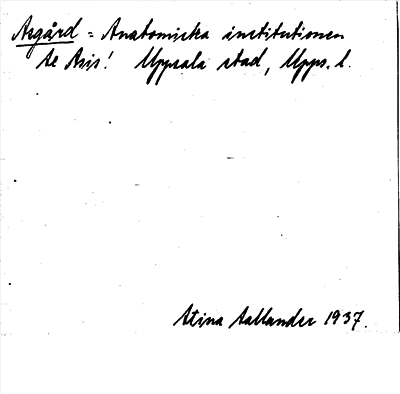 Asgård = Anatomiska institutionen
Se Asis! Uppsala stad, Upps. l.
Stina Sallander 1937.